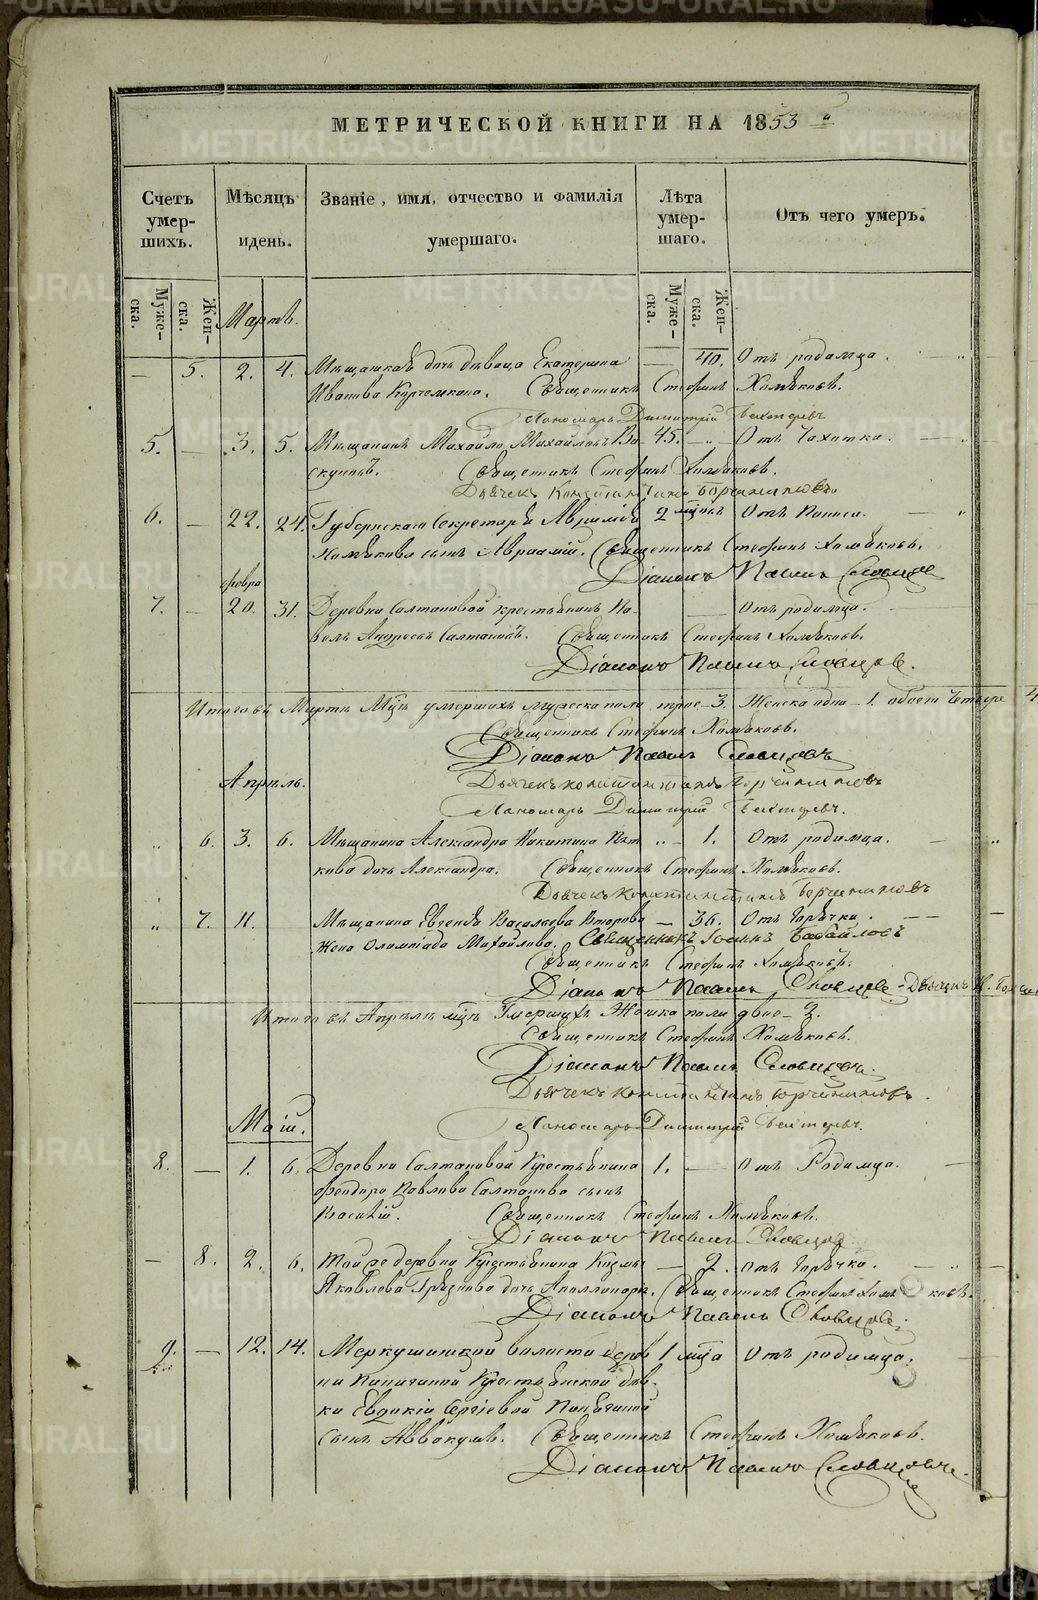 МЕТРИЧЕСКОЙ КНИГИ НА 1853
Счетъ умер-шихъ.
Мѣсяцъ идень.
Званіе, имя, отчество и фамилія умершаго.
Лѣта умер-шаго.
Отъ чего умеръ.
Муже-ска. Жен-ска.
Муже-ска. Жен-ска.
Мартъ.
— 5. 2. 4. дочь дѣвица Екатерина — 40. Отъ родимца.
Иванова Священникъ Стефанъ Хомяковъ.
Пономарь Димитрій
5. — 3. 5. Мѣщанинъ Михайло Михайловъ 45. — Отъ Чахотки.
Священникъ Стефанъ Хомяковъ.
Дьячекъ Константинъ
6. — 22. 24. Губернскаго Секретаря 2 мцовъ Отъ Поноса.
Хомякова сынъ Авраамій. Священникъ Стефанъ Хомяковъ.
Діаконъ Павелъ Словцовъ
февра
7. — 20. 31. Деревни Салтановой крестьянинъ Па- — Отъ родимца.
велъ Андреевъ Салтановъ. Священникъ Стефанъ Хомяковъ.
Діаконъ Павелъ Словцовъ.
Итого въ Мартѣ Мцѣ умершихъ мужеска пола трое — 3. Женска одна — 1. обоего четверо 4
Священникъ Стефанъ Хомяковъ.
Діаконъ Павелъ Словцовъ
Апрѣль.
Дьячекъ Константинъ
Пономарь Димитрій
„ 6. 3. 6. Мѣщанина Александра Никитина „ — 1. Отъ родимца.
кова дочь Александра. Священникъ Стефанъ Хомяковъ.
Дьячекъ Константинъ
„ 7. 11. Мѣщанина Евгенія Васильева — 36. Отъ Горячки.
Жена Олимпіада Михайлова. Священникъ Іоаннъ
Священникъ Стефанъ Хомяковъ.
Діаконъ Павелъ Словцовъ - Дьячекъ К.
Итого въ Апрѣлѣ мцѣ Умершихъ Женска пола двое — 2.
Священникъ Стефанъ Хомяковъ.
Діаконъ Павелъ Словцовъ.
Дьячекъ Константинъ
Пономарь Димитрій
Май.
8. — 1. 6. Деревни Салтановой Крестьянина 1. — Отъ Родимца.
Феодора Павлова Салтанова сынъ
Василій. Священникъ Стефанъ Хомяковъ.
Діаконъ Павелъ Словцовъ
— 8. 2. 6. Той же деревни Крестьянина Козмы — 2. Отъ Горячки.
Яковлева дочь Аполлинарія. Священникъ Стефанъ Хомяковъ.
Діаконъ Павелъ Словцовъ
9. — 12. 14. Меркушинской волости дерев 1 мца Отъ родимца.
ни Крестьянской дѣв-
ки Евдокіи Сергіевой
сынъ Аввакумъ. Священникъ Стефанъ Хомяковъ.
Діаконъ Павелъ Словцовъ.
METRIKI.GASO-URAL.RU